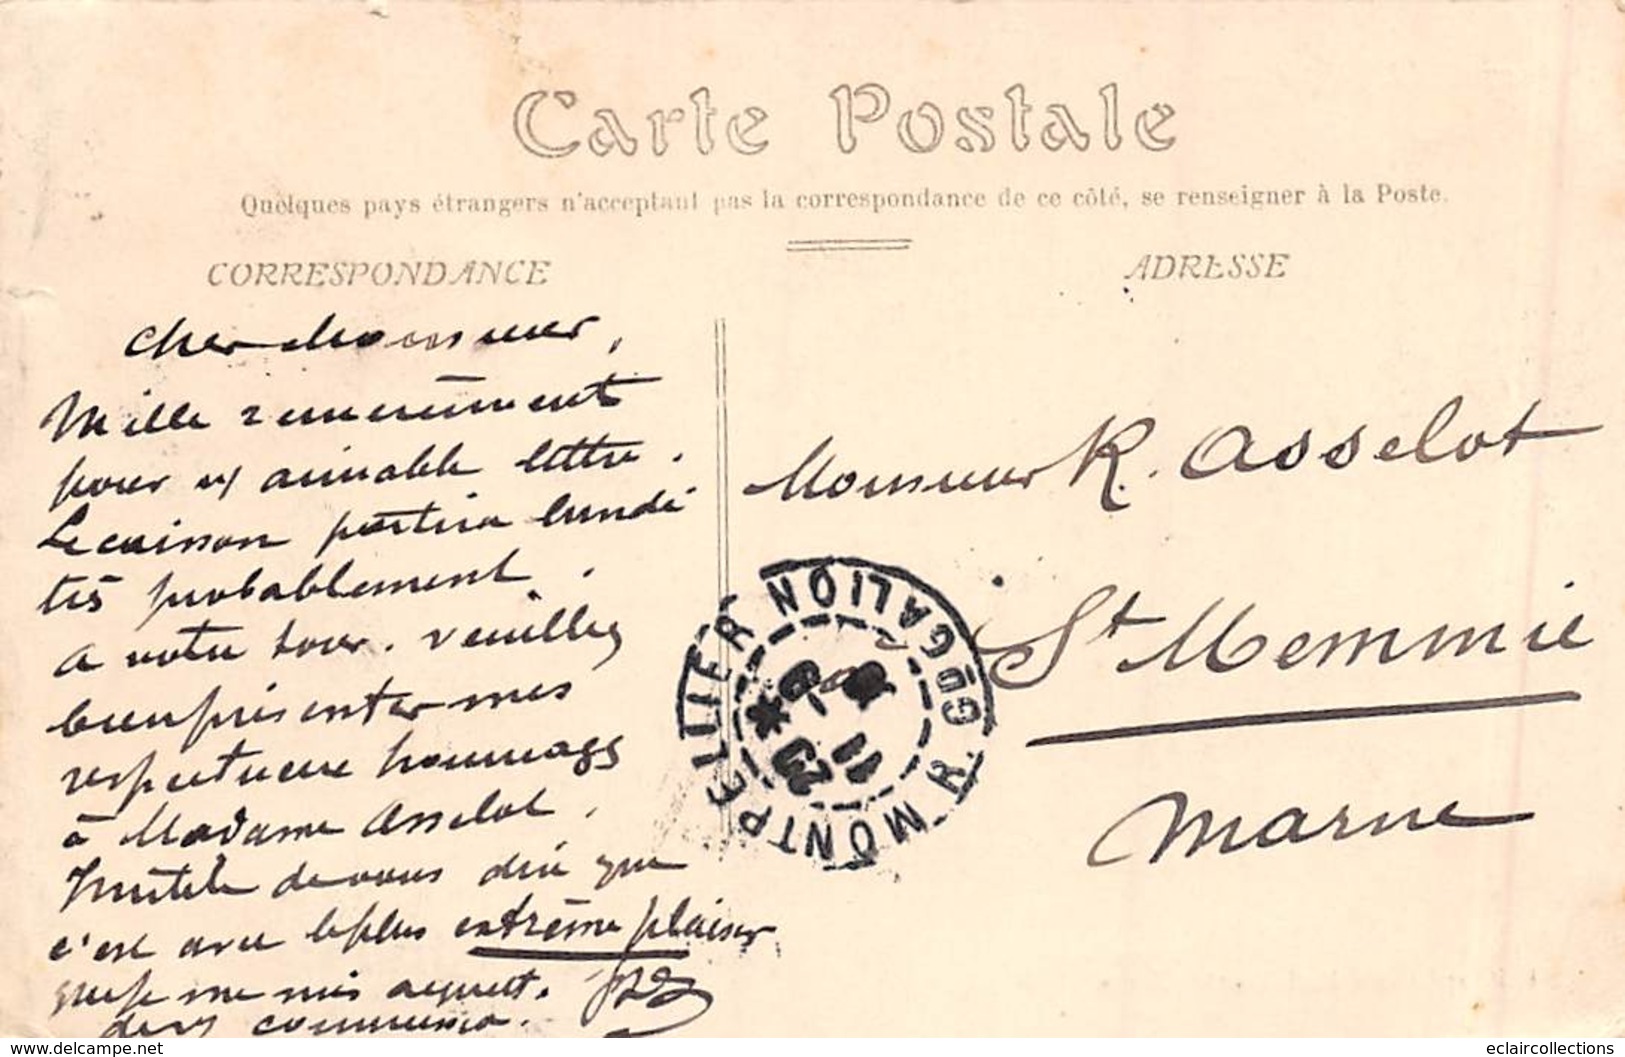 Carte Postale
Quelques pays étrangers n'acceptant pas la correspondance de ce côté, se renseigner à la Poste.
CORRESPONDANCE
ADRESSE
Cher Monsieur,
Mille remerciement
pour aimable lettre.
Le caisson partira lundi
très probablement.
A votre tour. veuillez
bien présenter mes
respectueux hommages
à Madame Asselot.
Inutile de vous dire que
c'est avec le plus extrême plaisir
que je me suis acquitté.
commission.
Monsieur R. Asselot
St Memmie
Marne
MONTPELLIER
R. DU GD GALION
11
delcampe.net
eclaircollections